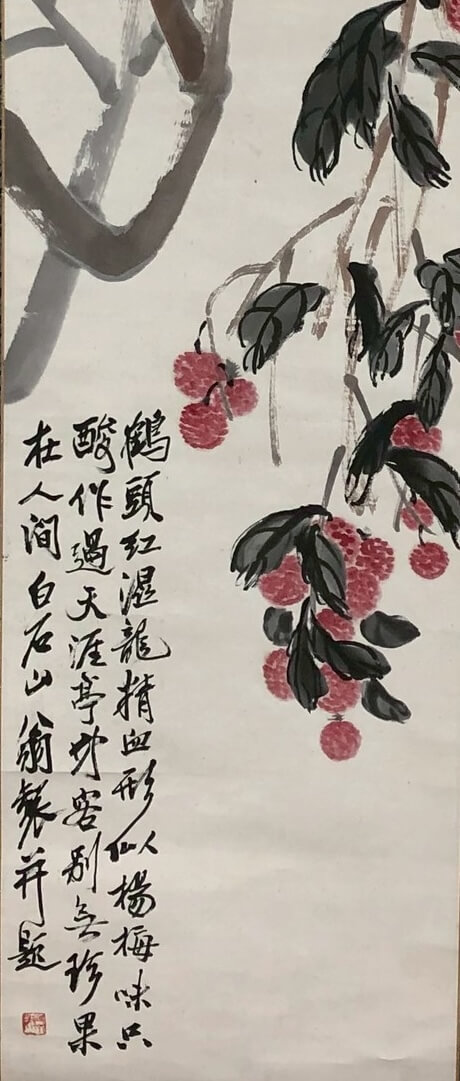 鶴頭紅濕龍精血形似楊梅味不
酸作過天涯亭外客別無珍果
在人間白石山翁製并題